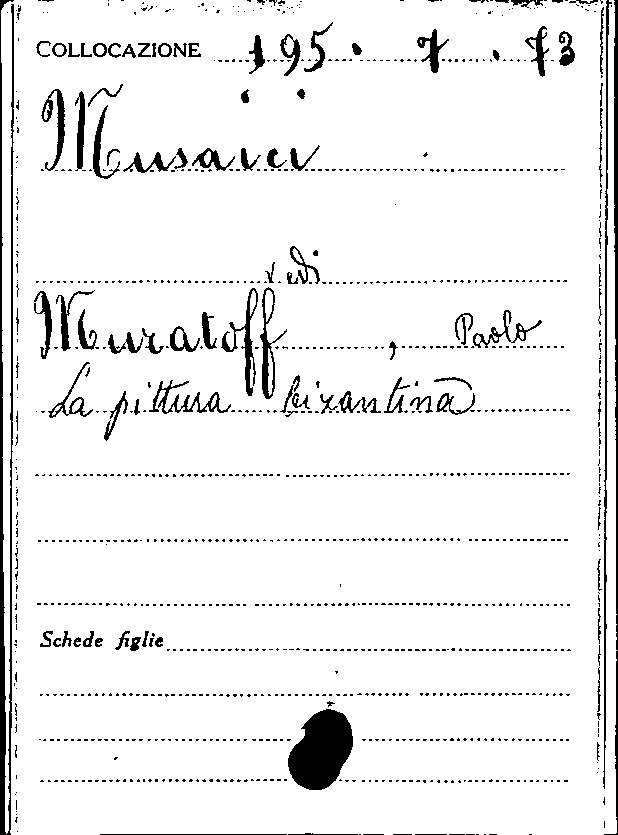 COLLOCAZIONE 195 . 7 . 73
Musaici
vedi
Muratoff, Paolo
La pittura bizantina
Schede figlie